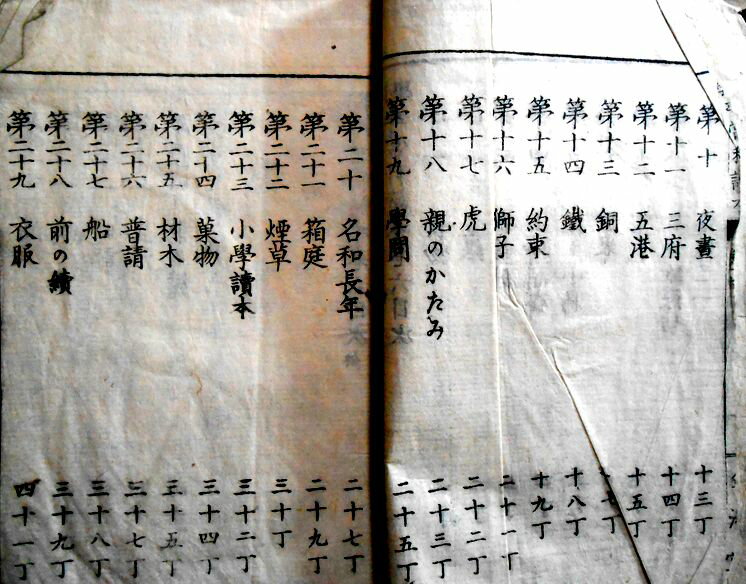 第十 夜晝 十三丁
第十一 三府 十四丁
第十二 五港 十五丁
第十三 銅 十七丁
第十四 鐵 十八丁
第十五 約束 十九丁
第十六 獅子 二十一丁
第十七 虎 二十二丁
第十八 親のかたみ 二十三丁
第十九 學問 二十五丁
第二十 名和長年 二十七丁
第二十一 箱庭 二十九丁
第二十二 煙草 三十丁
第二十三 小學讀本 三十二丁
第二十四 菓物 三十四丁
第二十五 材木 三十五丁
第二十六 普請 三十七丁
第二十七 船 三十八丁
第二十八 前の續 三十九丁
第二十九 衣服 四十一丁